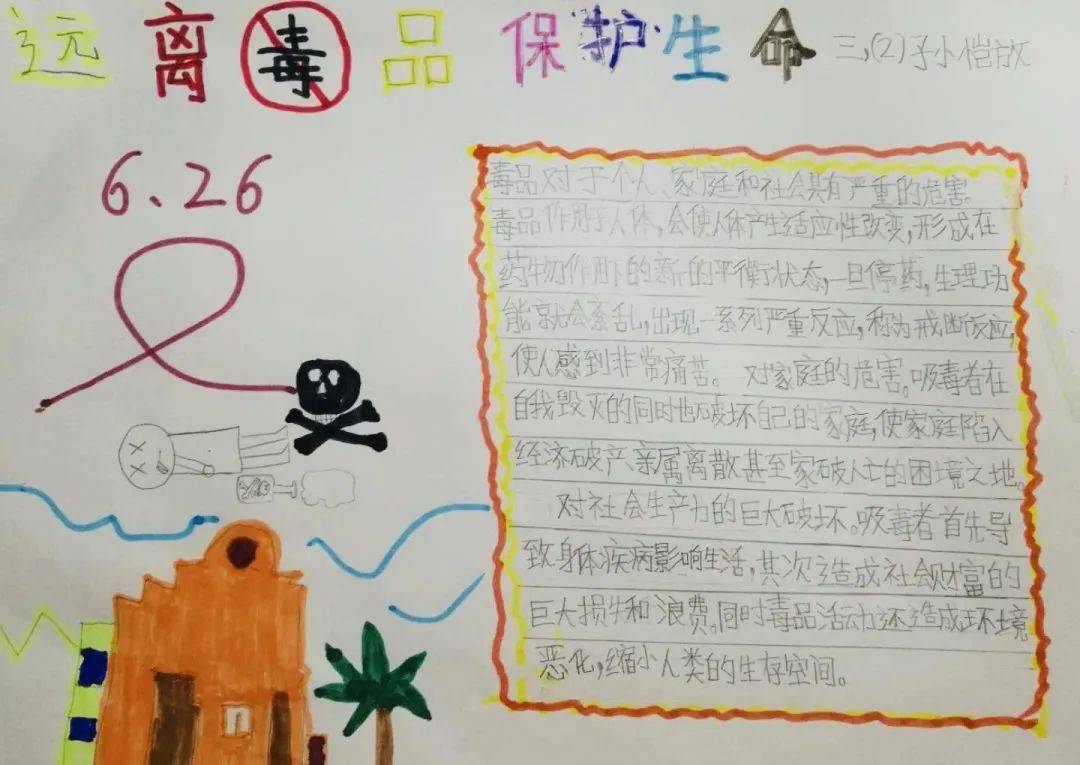 远离毒品保护生命
三,(2)子小恺放
6.26
毒品对于个人、家庭和社会具有严重的危害。
毒品作用于人体,会使人体产生适应性改变,形成在
药物作用下的新的平衡状态,一旦停药,生理功
能就会紊乱,出现一系列严重反应,称为戒断反应,
使人感到非常痛苦。 对家庭的危害。吸毒者在
自我毁灭的同时也破坏自己的家庭,使家庭陷入
经济破产、亲属离散甚至家破人亡的困境之地。
对社会生产力的巨大破坏。吸毒者首先导
致身体疾病影响生活,其次造成社会财富的
巨大损失和浪费。同时毒品活动还造成环境
恶化,缩小人类的生存空间。